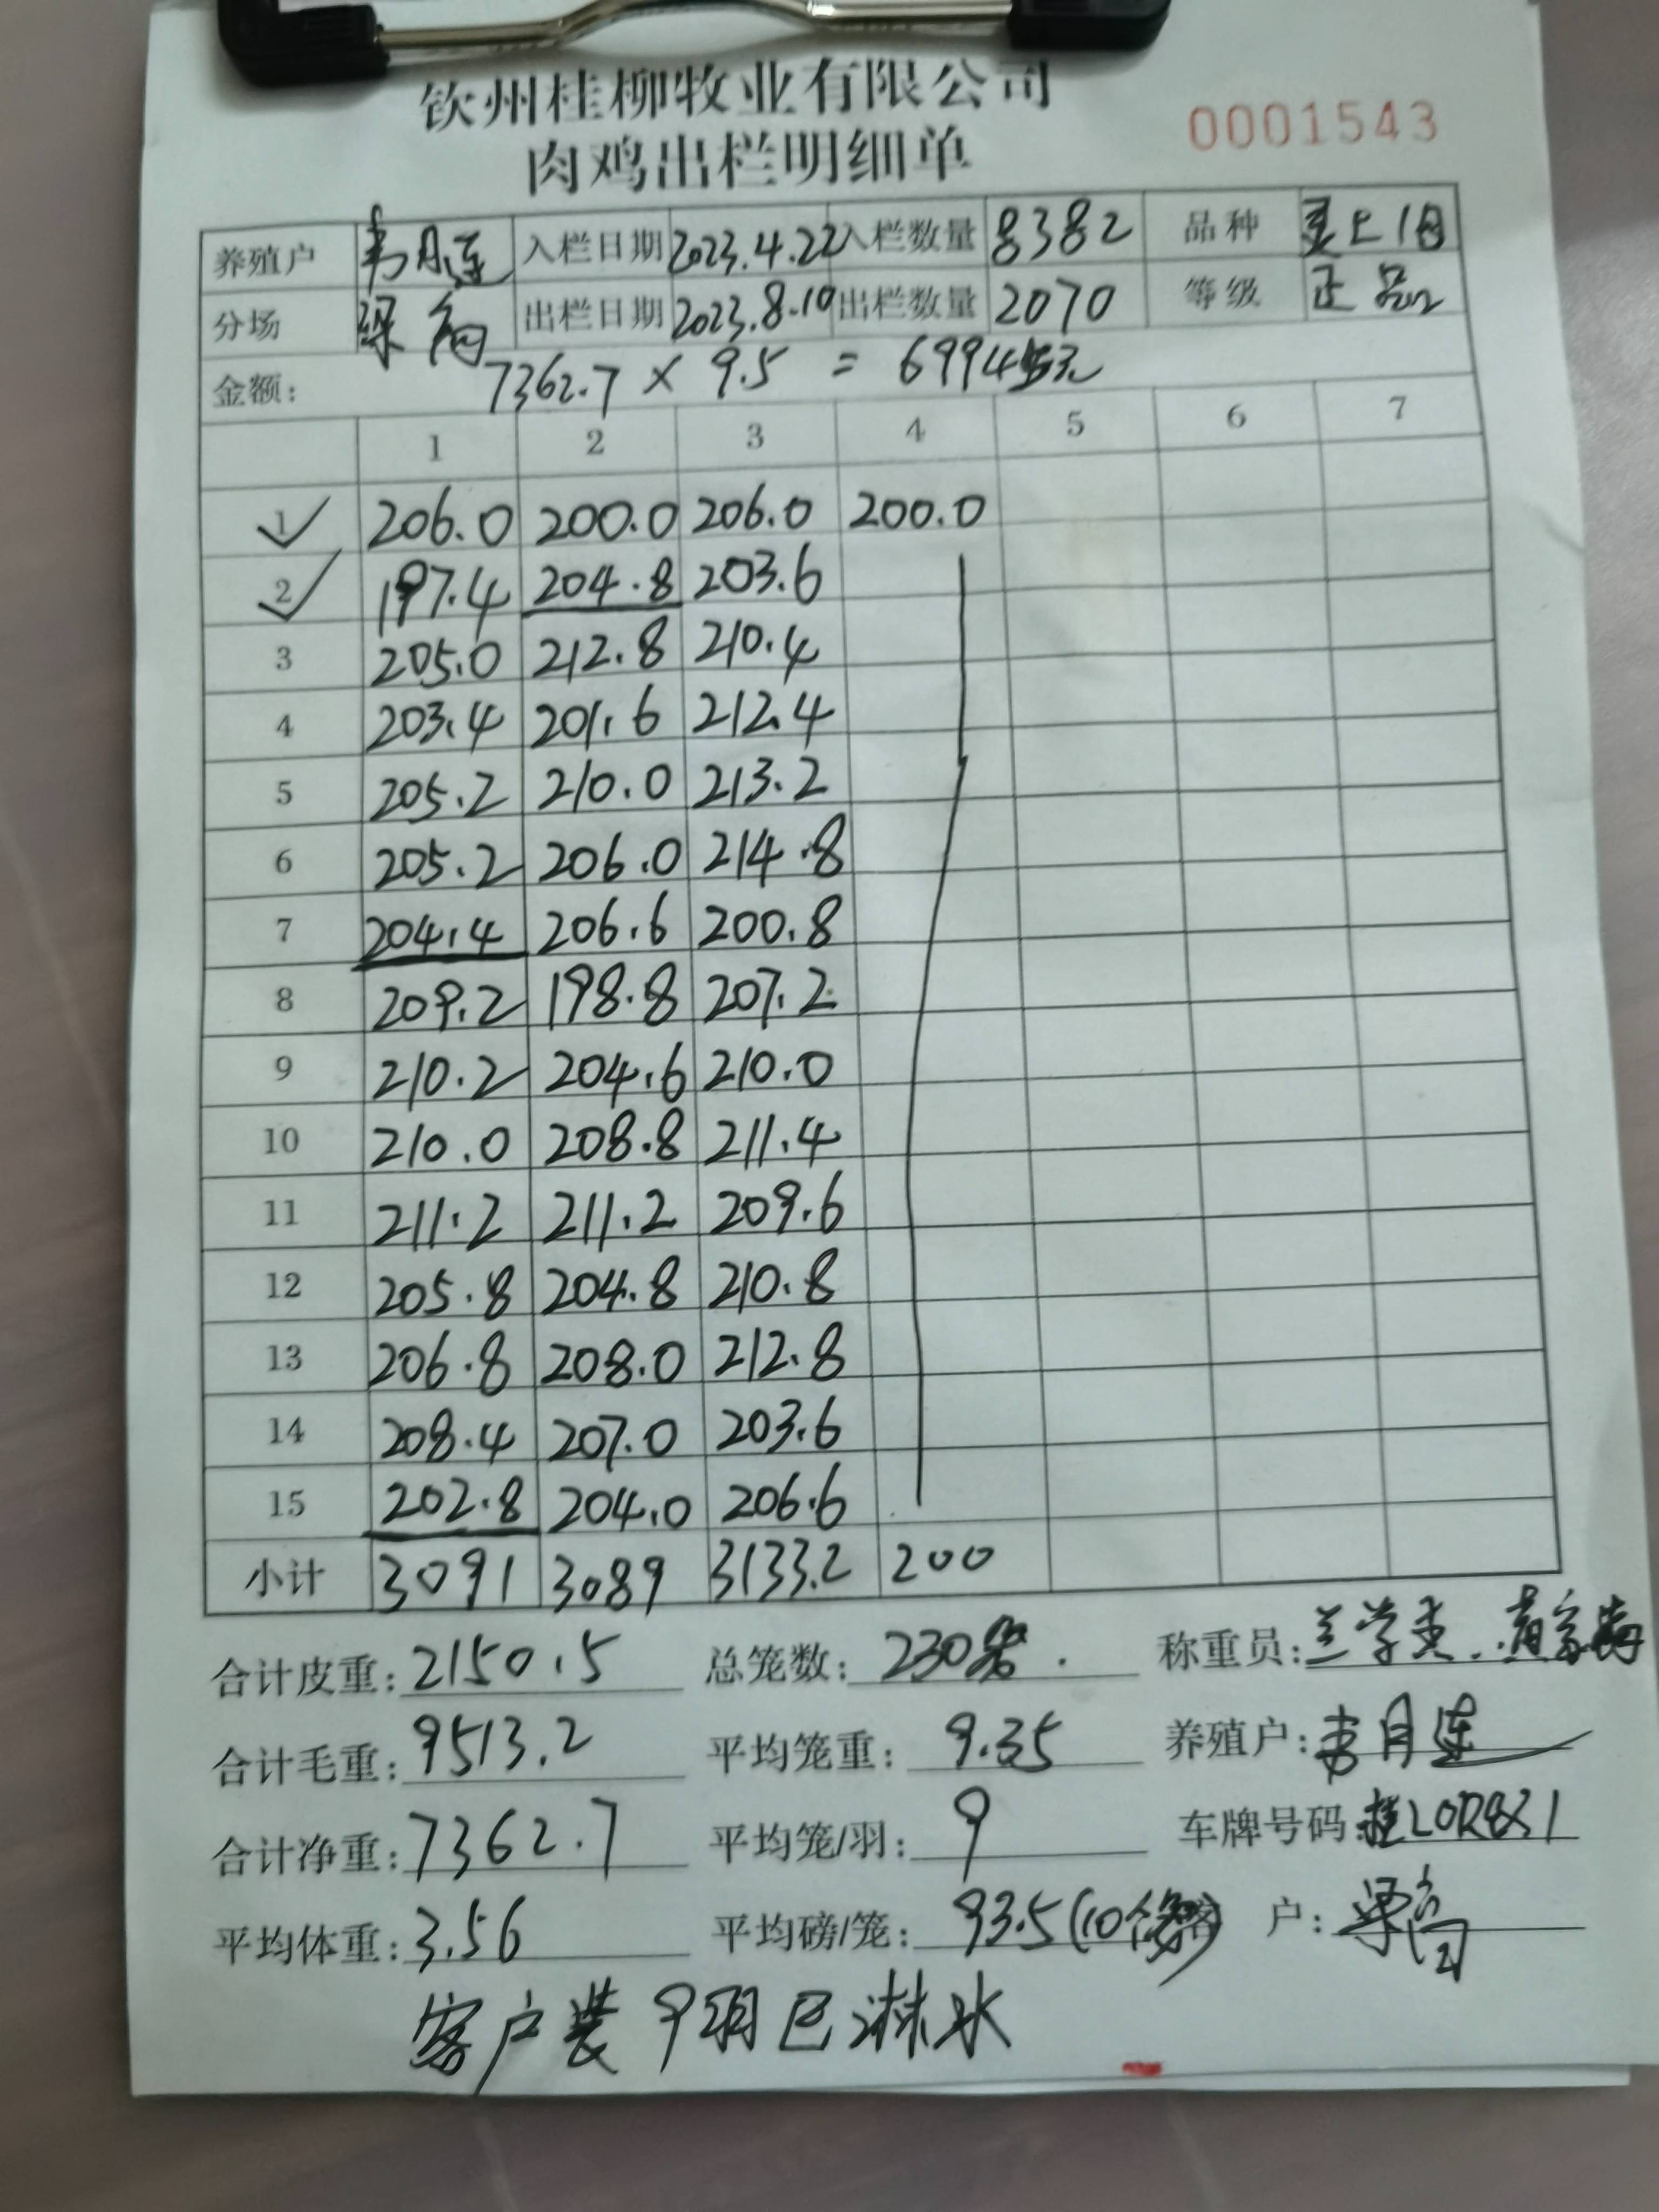 钦州桂柳牧业有限公司
肉鸡出栏明细单
0001543
养殖户 韦月连 入栏日期 2023.4.22 入栏数量 8382 品种
分场 梁向 出栏日期 2023.8.10 出栏数量 2070 等级 正品
金额: 7362.7 × 9.5 = 69945元
1 2 3 4 5 6 7
1 206.0 200.0 206.0 200.0
2 197.4 204.8 203.6
3 205.0 212.8 210.4
4 203.4 201.6 212.4
5 205.2 210.0 213.2
6 205.2 206.0 214.8
7 204.4 206.6 200.8
8 209.2 198.8 207.2
9 210.2 204.6 210.0
10 210.0 208.8 211.4
11 211.2 211.2 209.6
12 205.8 204.8 210.8
13 206.8 208.0 212.8
14 208.4 207.0 203.6
15 202.8 204.0 206.6
小计 3091 3089 3133.2 200
合计皮重: 2150.5 总笼数: 230 称重员: 兰学
合计毛重: 9513.2 平均笼重: 9.35 养殖户: 韦月连
合计净重: 7362.7 平均笼/羽: 9 车牌号码:
平均体重: 3.56 平均磅/笼: 93.5(10 户:
客户装9羽已淋水